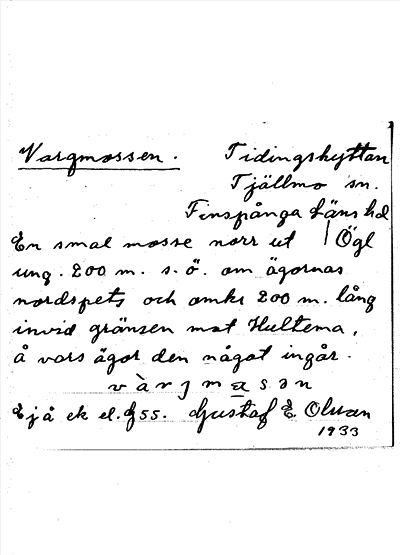 Vargmossen. Tidingshyttan
Tjällmo sn.
Finspånga läns hd
En smal mosse norr ut Ögl
ung. 200 m. s.ö. om ägornas
nordspets och omkr 200 m. lång
invid gränsen mot Hultema,
å vars ägor den något ingår.
vàrjmasən
Ej å ek el. Gss. Gustaf E Olsson
1933